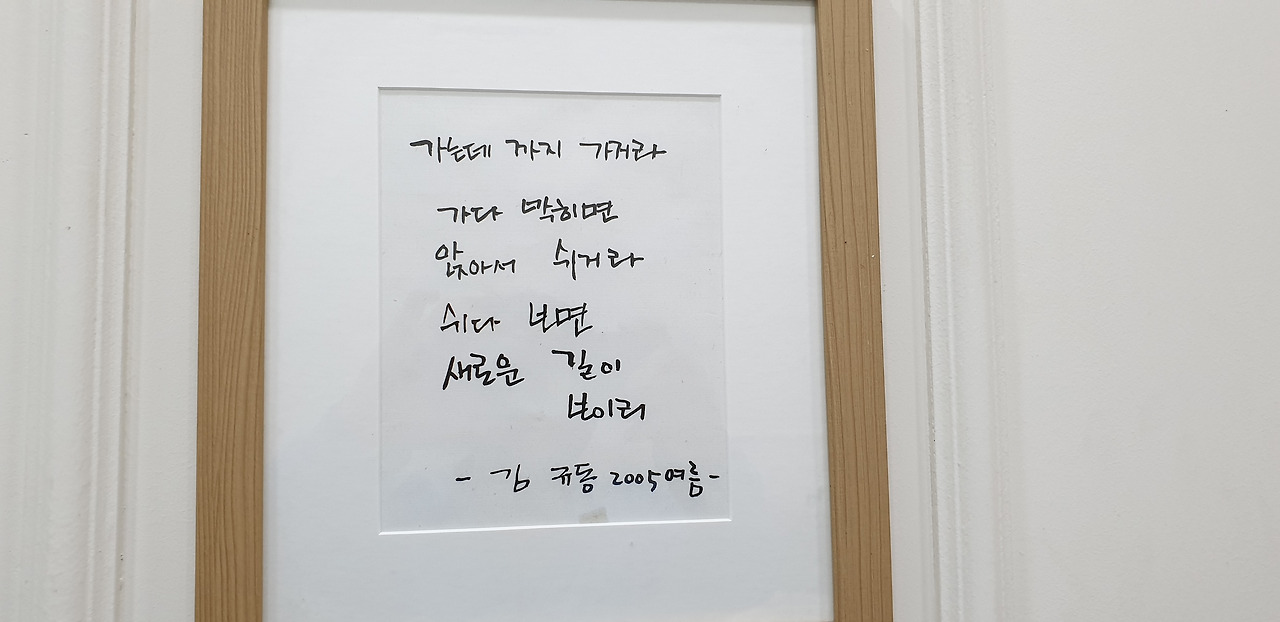 가는데 까지 가거라
가다 막히면
앉아서 쉬거라
쉬다 보면
새로운 길이
보이리
- 김 규동 2005여름 -